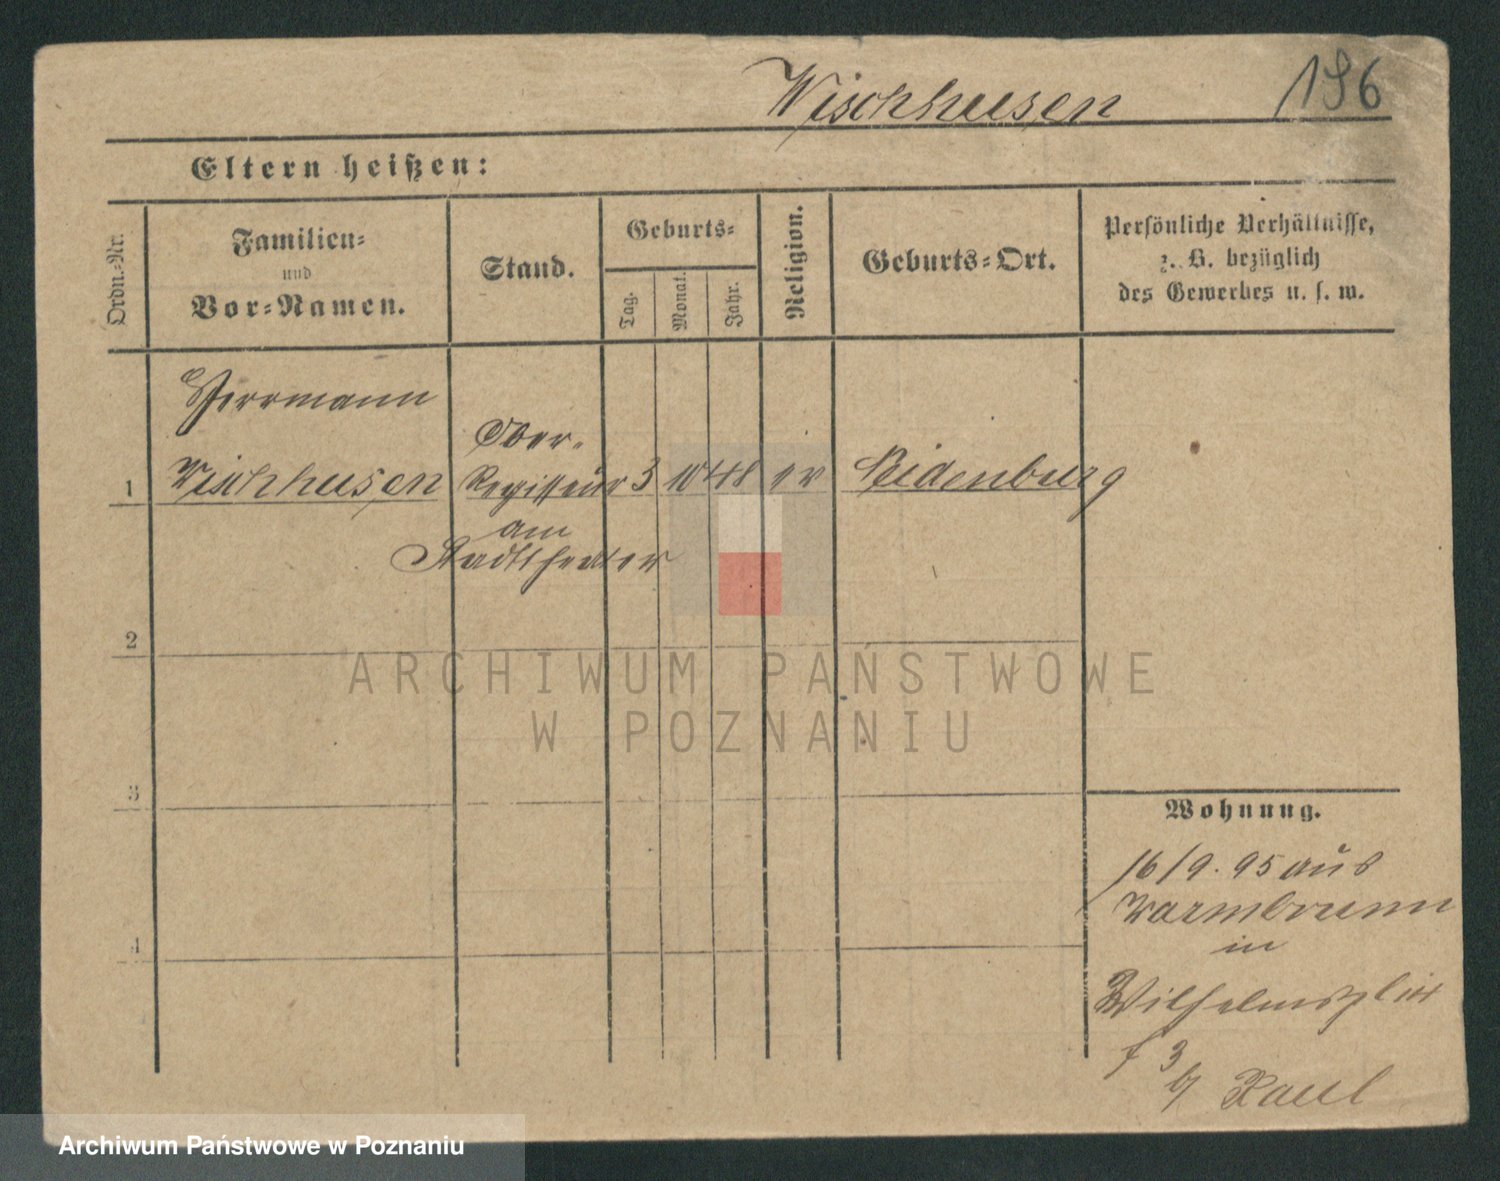 Wischhusen 196
Eltern heißen:
Ordn.=Nr.
Familien=
und
Vor=Namen.
Stand.
Geburts=
Tag.
Monat.
Jahr.
Religion.
Geburts=Ort.
Persönliche Verhältnisse,
z. B. bezüglich
des Gewerbes u. s. w.
Herrmann
Ober-
1 Wischhusen Regisseur 3 10 48 ev
am
Stadttheater
2
3
4
Wohnung.
16/9. 95 aus
Warmbrunn
in
Wilhelmsplatz
3
b/
ARCHIWUM PAŃSTWOWE
W POZNANIU
Archiwum Państwowe w Poznaniu